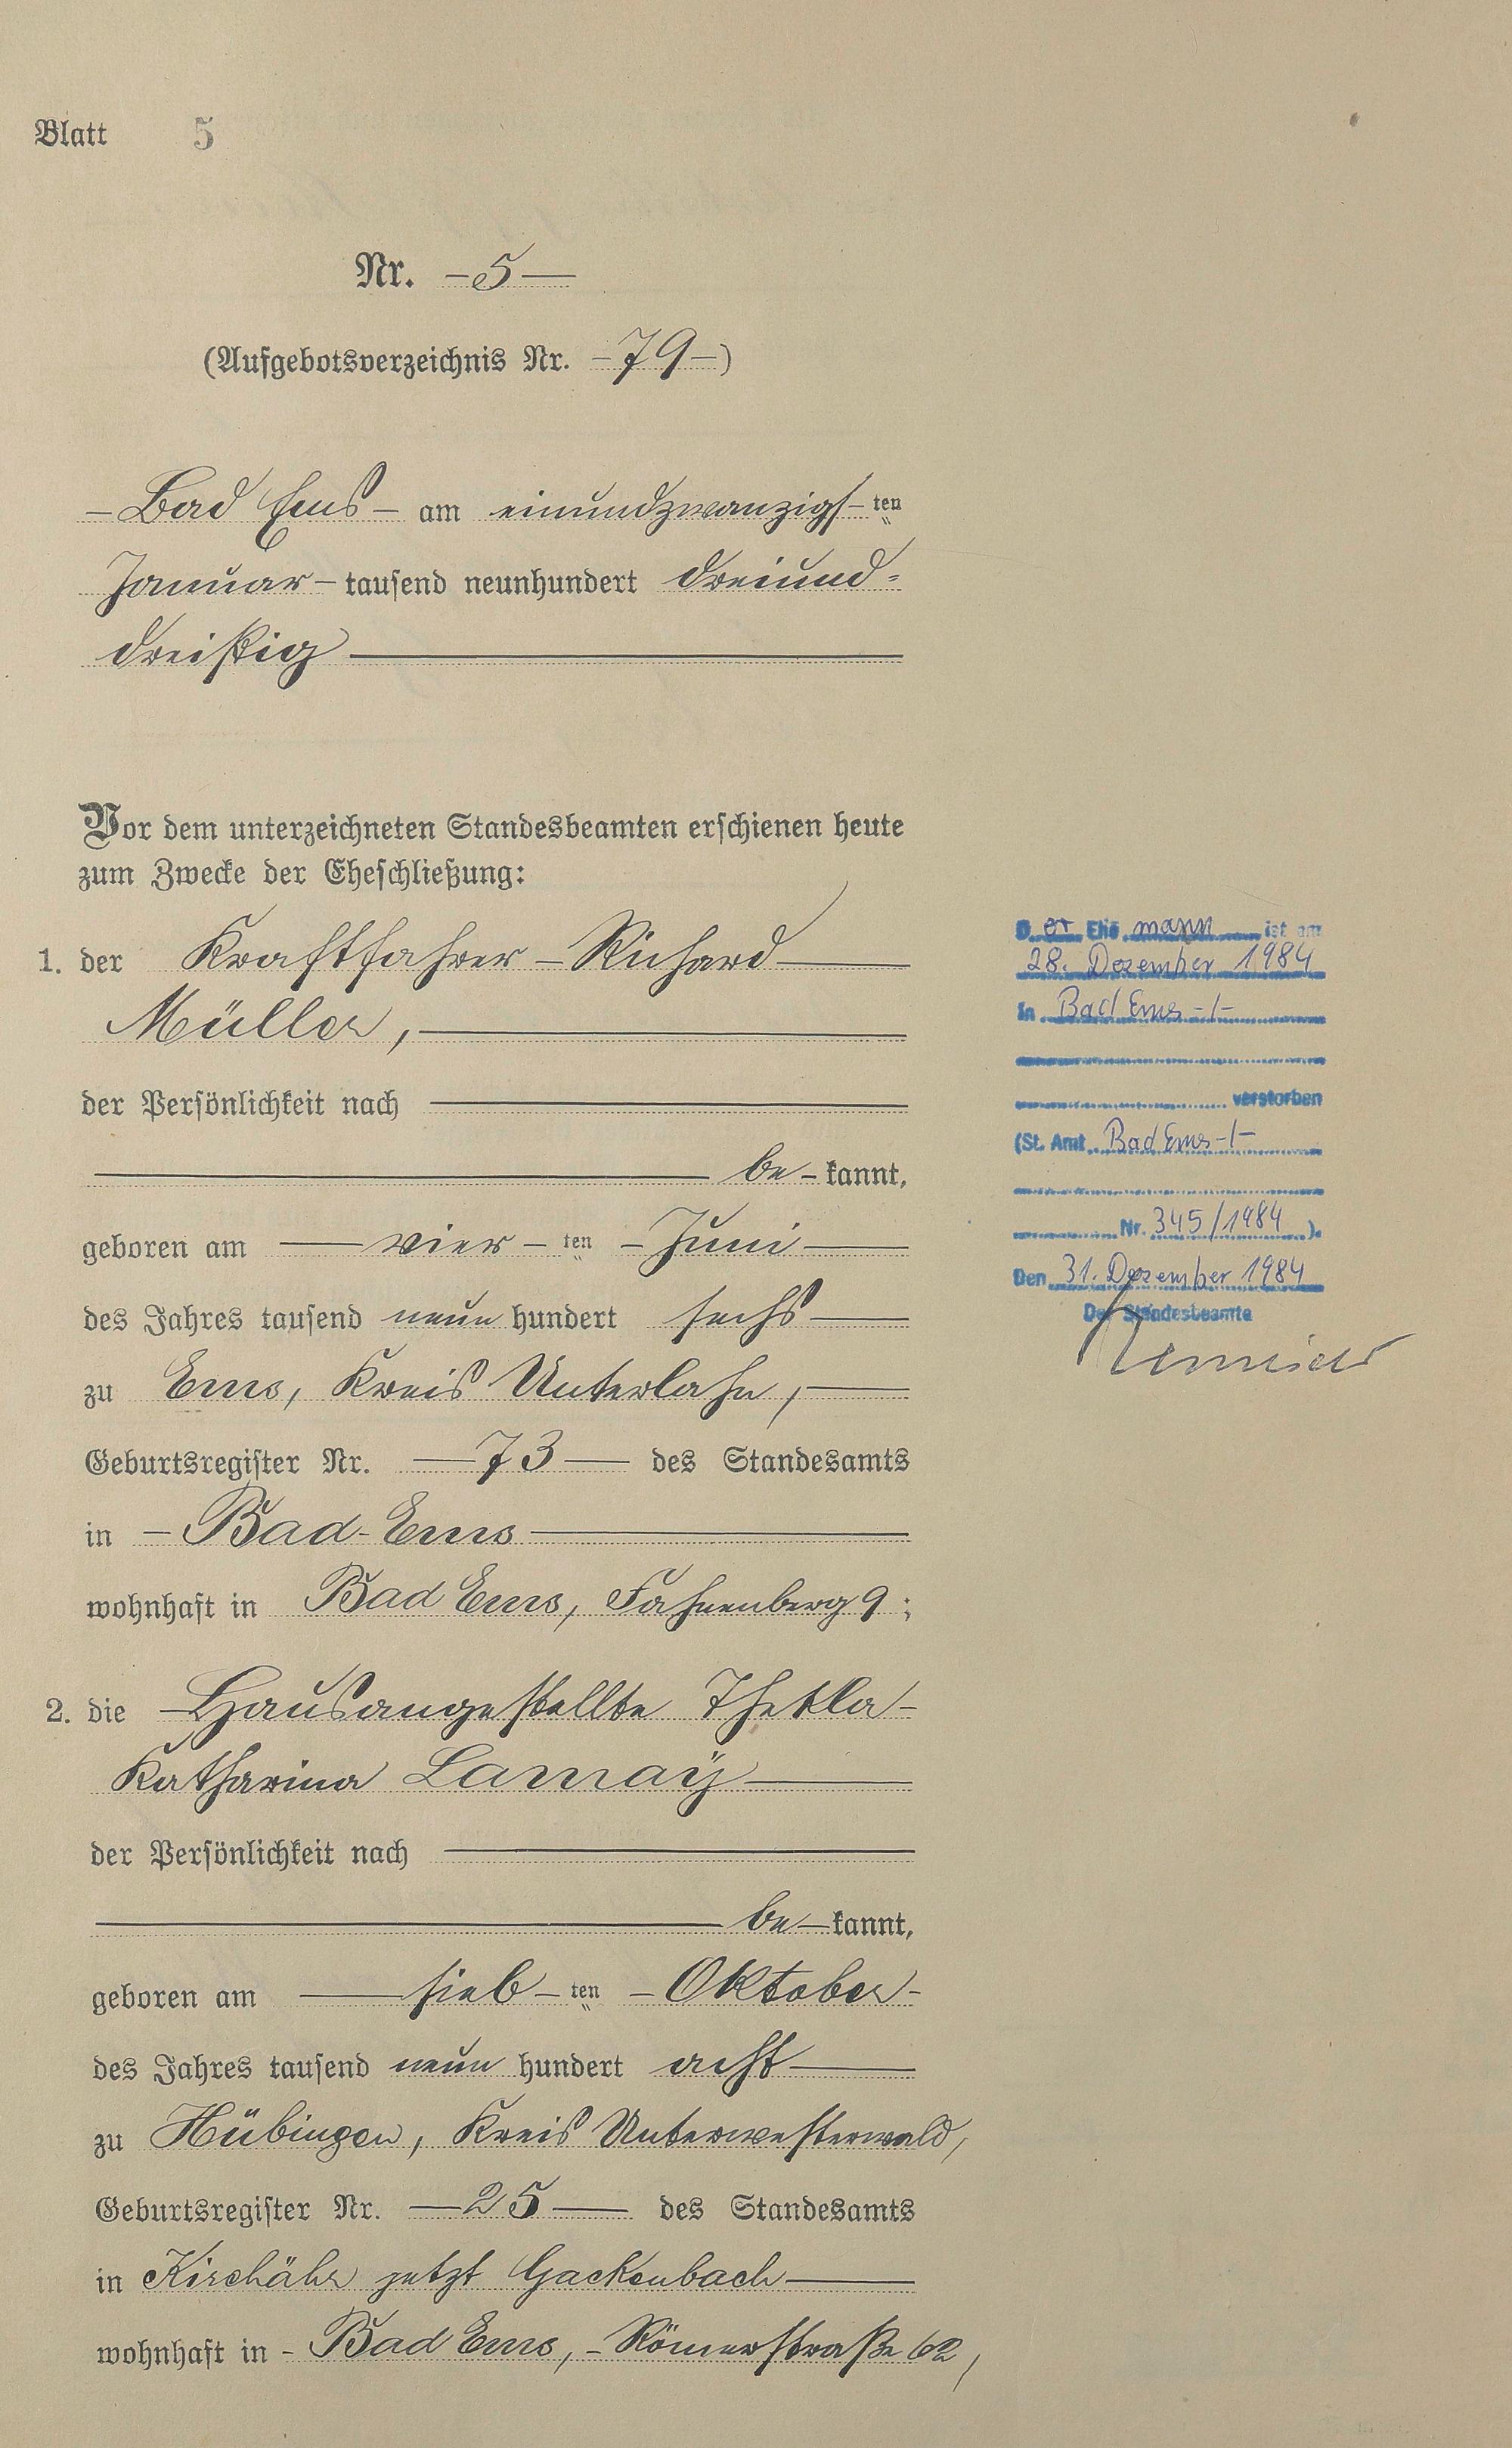 Blatt 5
Nr. - 5 -
(Aufgebotsverzeichnis Nr. - 79 -)
- Bad Ems - am einundzwanzigs-ten
Januar - tausend neunhundert dreiund=
dreißig
Vor dem unterzeichneten Standesbeamten erschienen heute
zum Zwecke der Eheschließung:
1. der Kraftfahrer - Richard
Müller,
der Persönlichkeit nach
be-kannt,
geboren am vier-ten - Juni
des Jahres tausend neun hundert sechs
zu Ems, Kreis Unterlahn,
Geburtsregister Nr. - 73 - des Standesamts
in - Bad-Ems
wohnhaft in Bad Ems, Fahnenberg 9;
2. die - Hausangestellte Thekla -
Katharina Lamaÿ
der Persönlichkeit nach
be-kannt,
geboren am sieb-ten - Oktober -
des Jahres tausend neun hundert acht
zu Hübingen, Kreis Unterwesterwald,
Geburtsregister Nr. - 25 - des Standesamts
in Kirchähr jetzt Gackenbach
wohnhaft in - Bad Ems, - Römerstraße 62,
D.er Ehemann ist am
28. Dezember 1984
in Bad Ems -/-
verstorben
(St. Amt Bad Ems -/-
Nr. 345/1984).
Den 31. Dezember 1984
Der Standesbeamte